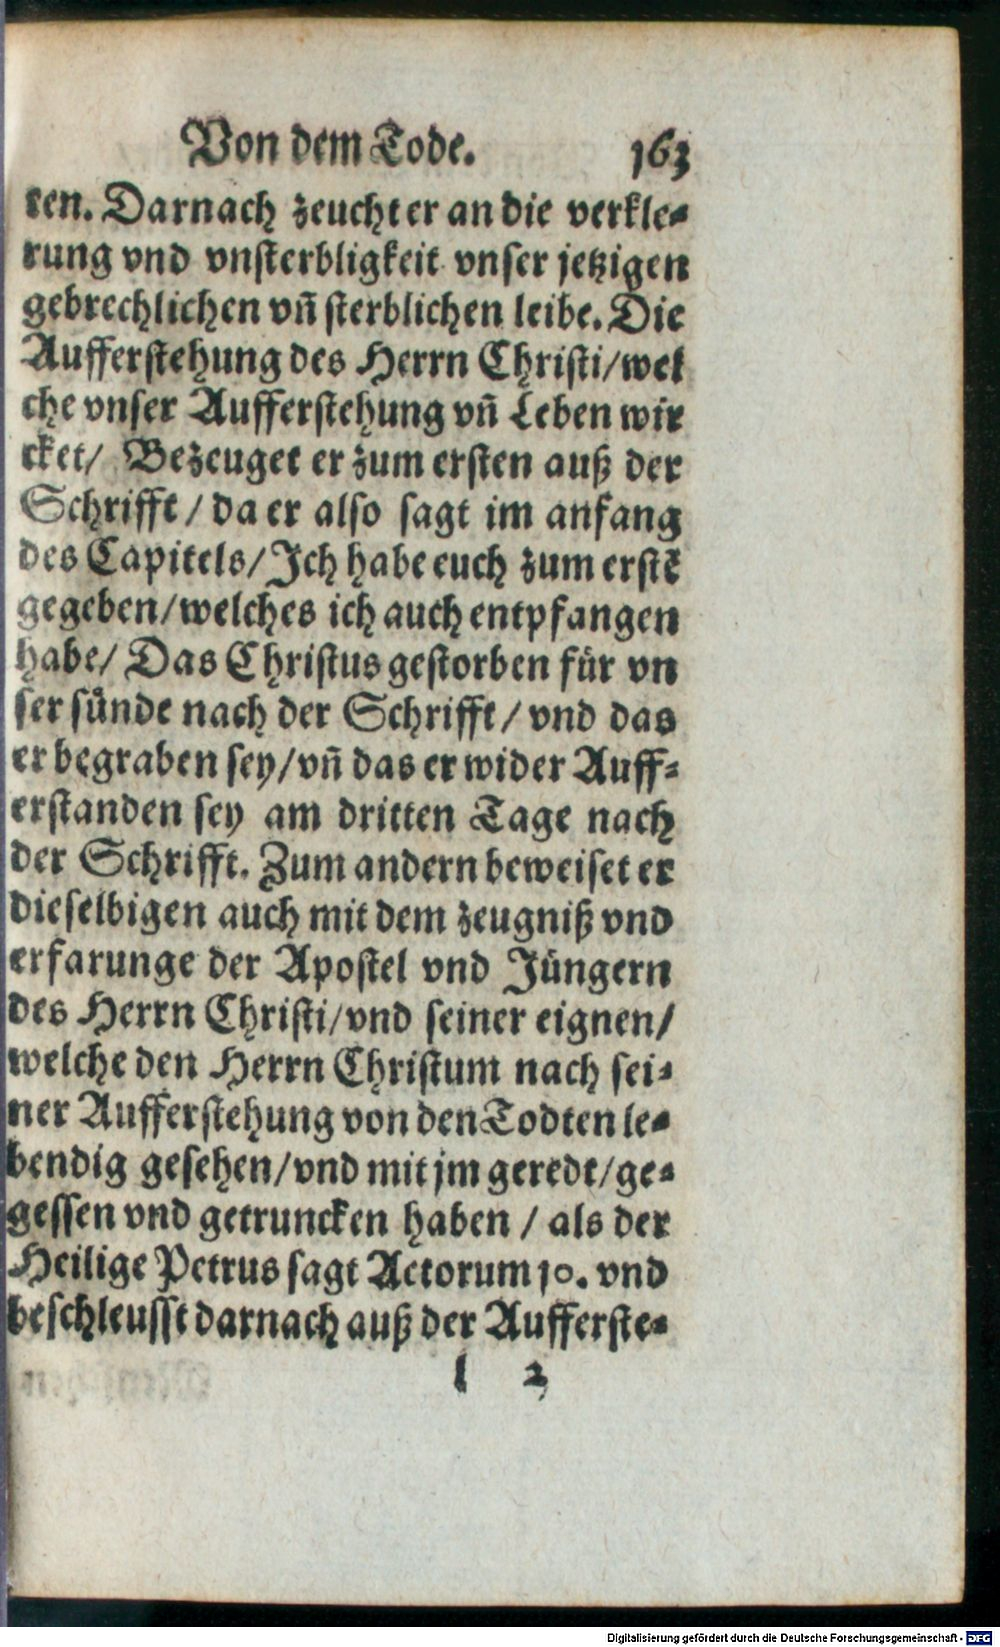 Von dem Tode. 163
ren. Darnach zeucht er an die verkle⸗
rung vnd vnsterbligkeit vnser jetzigen
gebrechlichen vñ sterblichen leibe. Die
Aufferstehung des Herrn Christi/wel
che vnser Aufferstehung vñ Leben wir
cket/ Bezeuget er zum ersten auß der
Schrifft/ da er also sagt im anfang
des Capitels/Ich habe euch zum erstẽ
gegeben/welches ich auch entpfangen
habe/ Das Christus gestorben für vn
ser sünde nach der Schrifft/ vnd das
er begraben sey/vñ das er wider Auff⸗
erstanden sey am dritten Tage nach
der Schrifft. Zum andern beweiset er
dieselbigen auch mit dem zeugniß vnd
erfarunge der Apostel vnd Jüngern
des Herrn Christi/vnd seiner eignen/
welche den Herrn Christum nach sei⸗
ner Aufferstehung von den Todten le⸗
bendig gesehen/vnd mit jm geredt/ge⸗
gessen vnd getruncken haben / als der
Heilige Petrus sagt Actorum 10. vnd
beschleusst darnach auß der Aufferste⸗
l 2
Digitalisierung gefördert durch die Deutsche Forschungsgemeinschaft - DFG